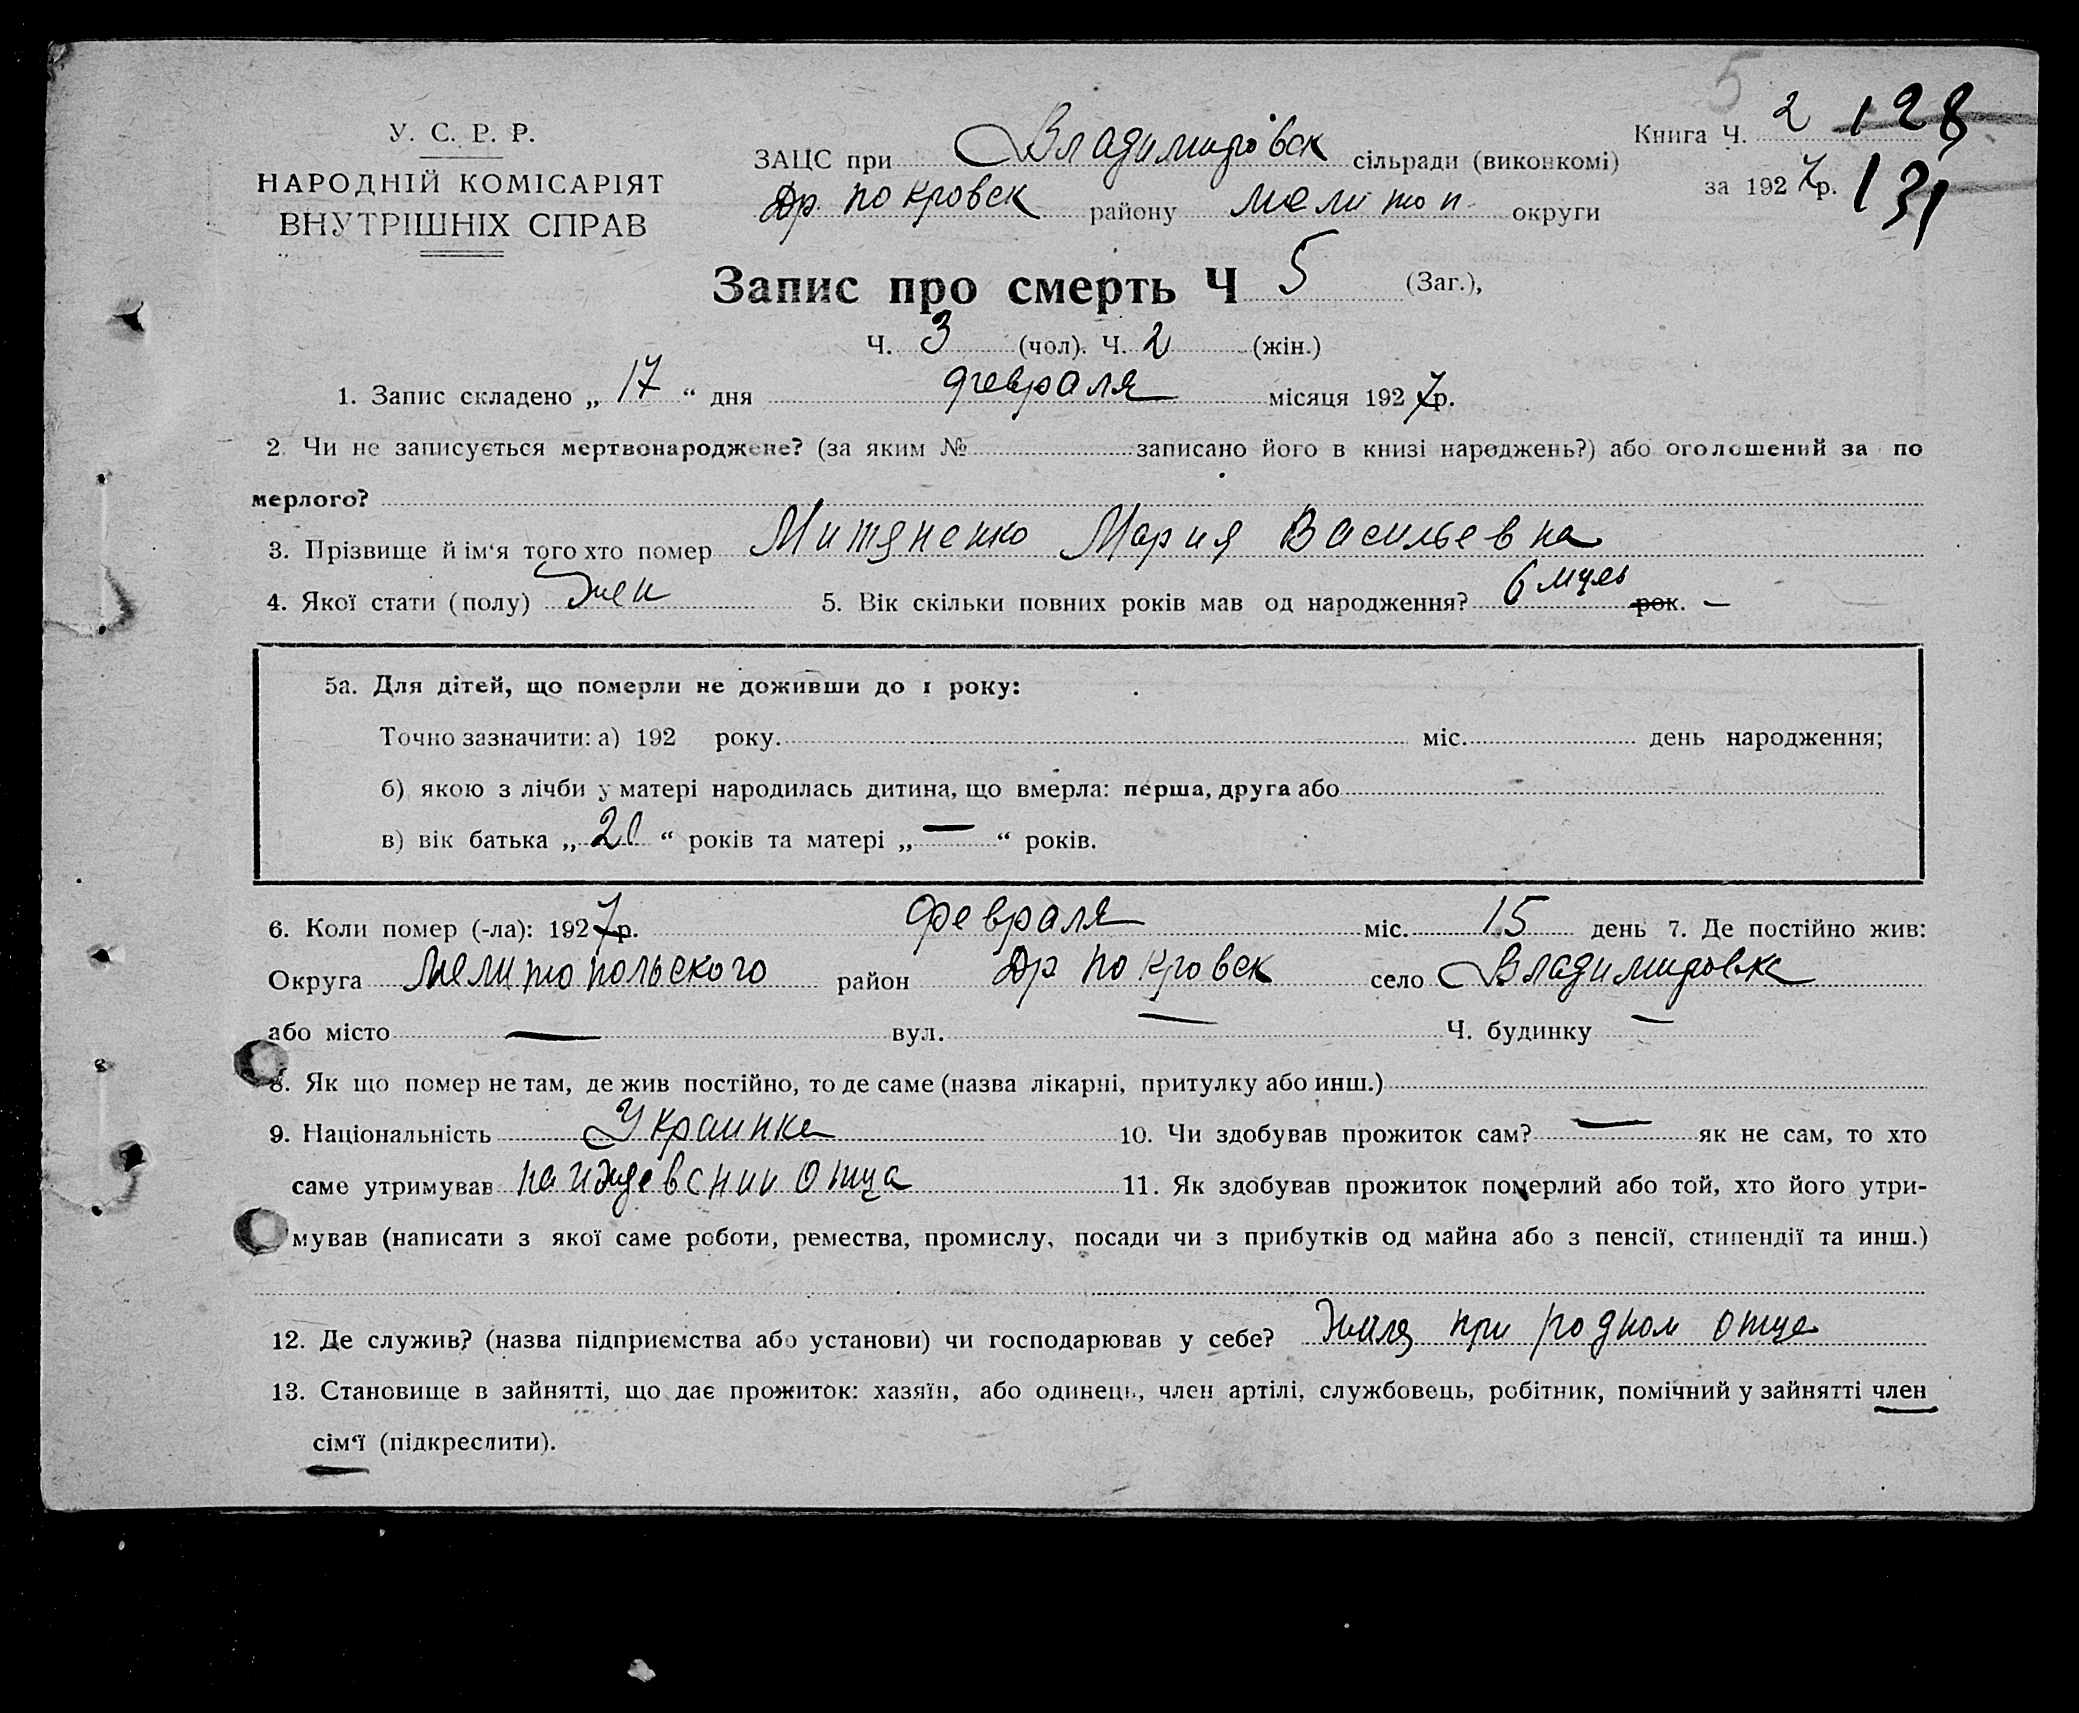 5
У. С. Р. Р.
НАРОДНІЙ КОМІСАРІЯТ
ВНУТРІШНІХ СПРАВ
ЗАЦС при Владимировск сільради (виконкомі)
Др. Покровск району Мелитоп. округи
Книга Ч. 2 128
за 1927 р. 131
Запис про смерть Ч 5 (Заг.),
Ч. 3 (чол). Ч. 2 (жін.)
1. Запис складено „ 17 “ дня февраля місяця 1927 р.
2. Чи не записується мертвонароджене? (за яким № записано його в книзі народжень?) або оголошений за по
мерлого?
3. Прізвище й ім‘я того хто помер Митяненко Мария Васильевна
4. Якої стати (полу) Жен 5. Вік скільки повних років мав од народження? 6 рок. —
5а. Для дітей, що померли не доживши до 1 року:
Точно зазначити: а) 192 року. міс. день народження;
б) якою з лічби у матері народилась дитина, що вмерла: перша, друга або
в) вік батька „ 20 “ років та матері „ — “ років.
6. Коли помер (-ла): 1927 р. Февраля міс. 15 день 7. Де постійно жив:
Округа Мелитопольского район Др Покровск село Владимировка
або місто — вул. — Ч. будинку —
8. Як що помер не там, де жив постійно, то де саме (назва лікарні, притулку або инш.)
9. Національність Украинка 10. Чи здобував прожиток сам? — як не сам, то хто
саме утримував на иждевении отца 11. Як здобував прожиток померлий або той, хто його утри-
мував (написати з якої саме роботи, ремества, промислу, посади чи з прибутків од майна або з пенсії, стипендії та инш.)
12. Де служив? (назва підприємства або установи) чи господарював у себе? при родном отце
13. Становище в зайнятті, що дає прожиток: хазяїн, або одинець, член артілі, службовець, робітник, помічний у зайнятті член
сім‘ї (підкреслити).